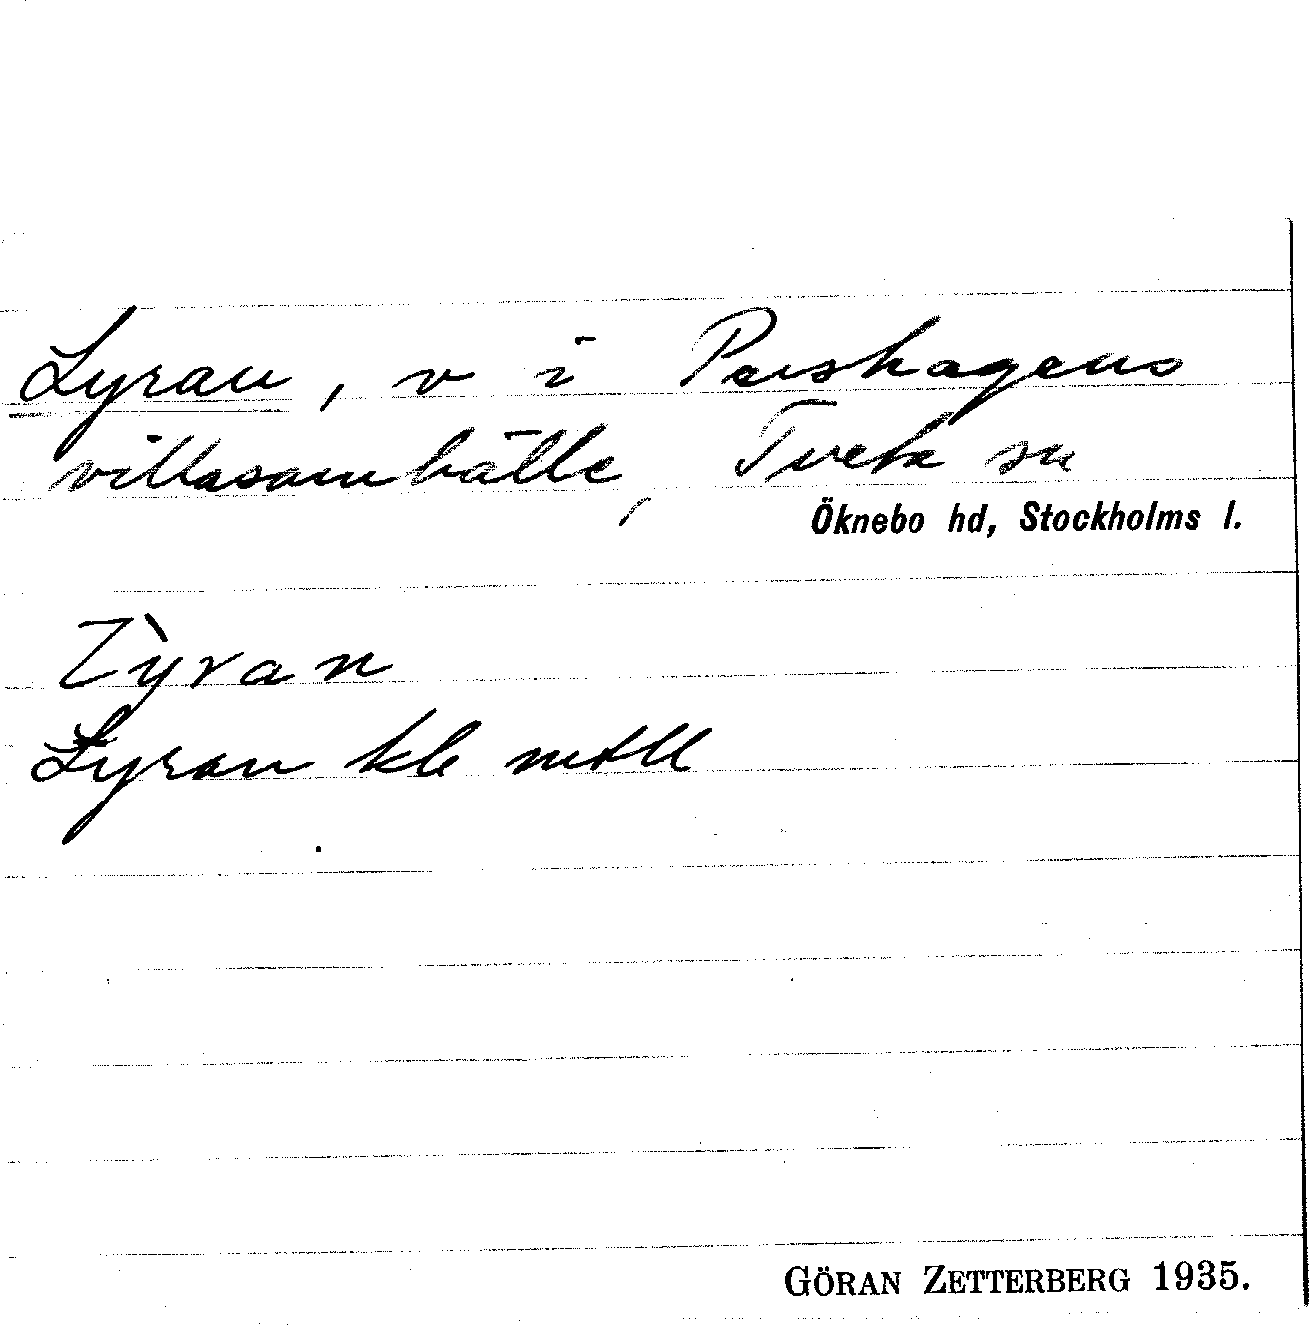 Lyran, v i Pershagens
villasamhälle, Tveta sn
Öknebo hd, Stockholms l.
Lỳran
Lyran kle mtll
GÖRAN ZETTERBERG 1935.